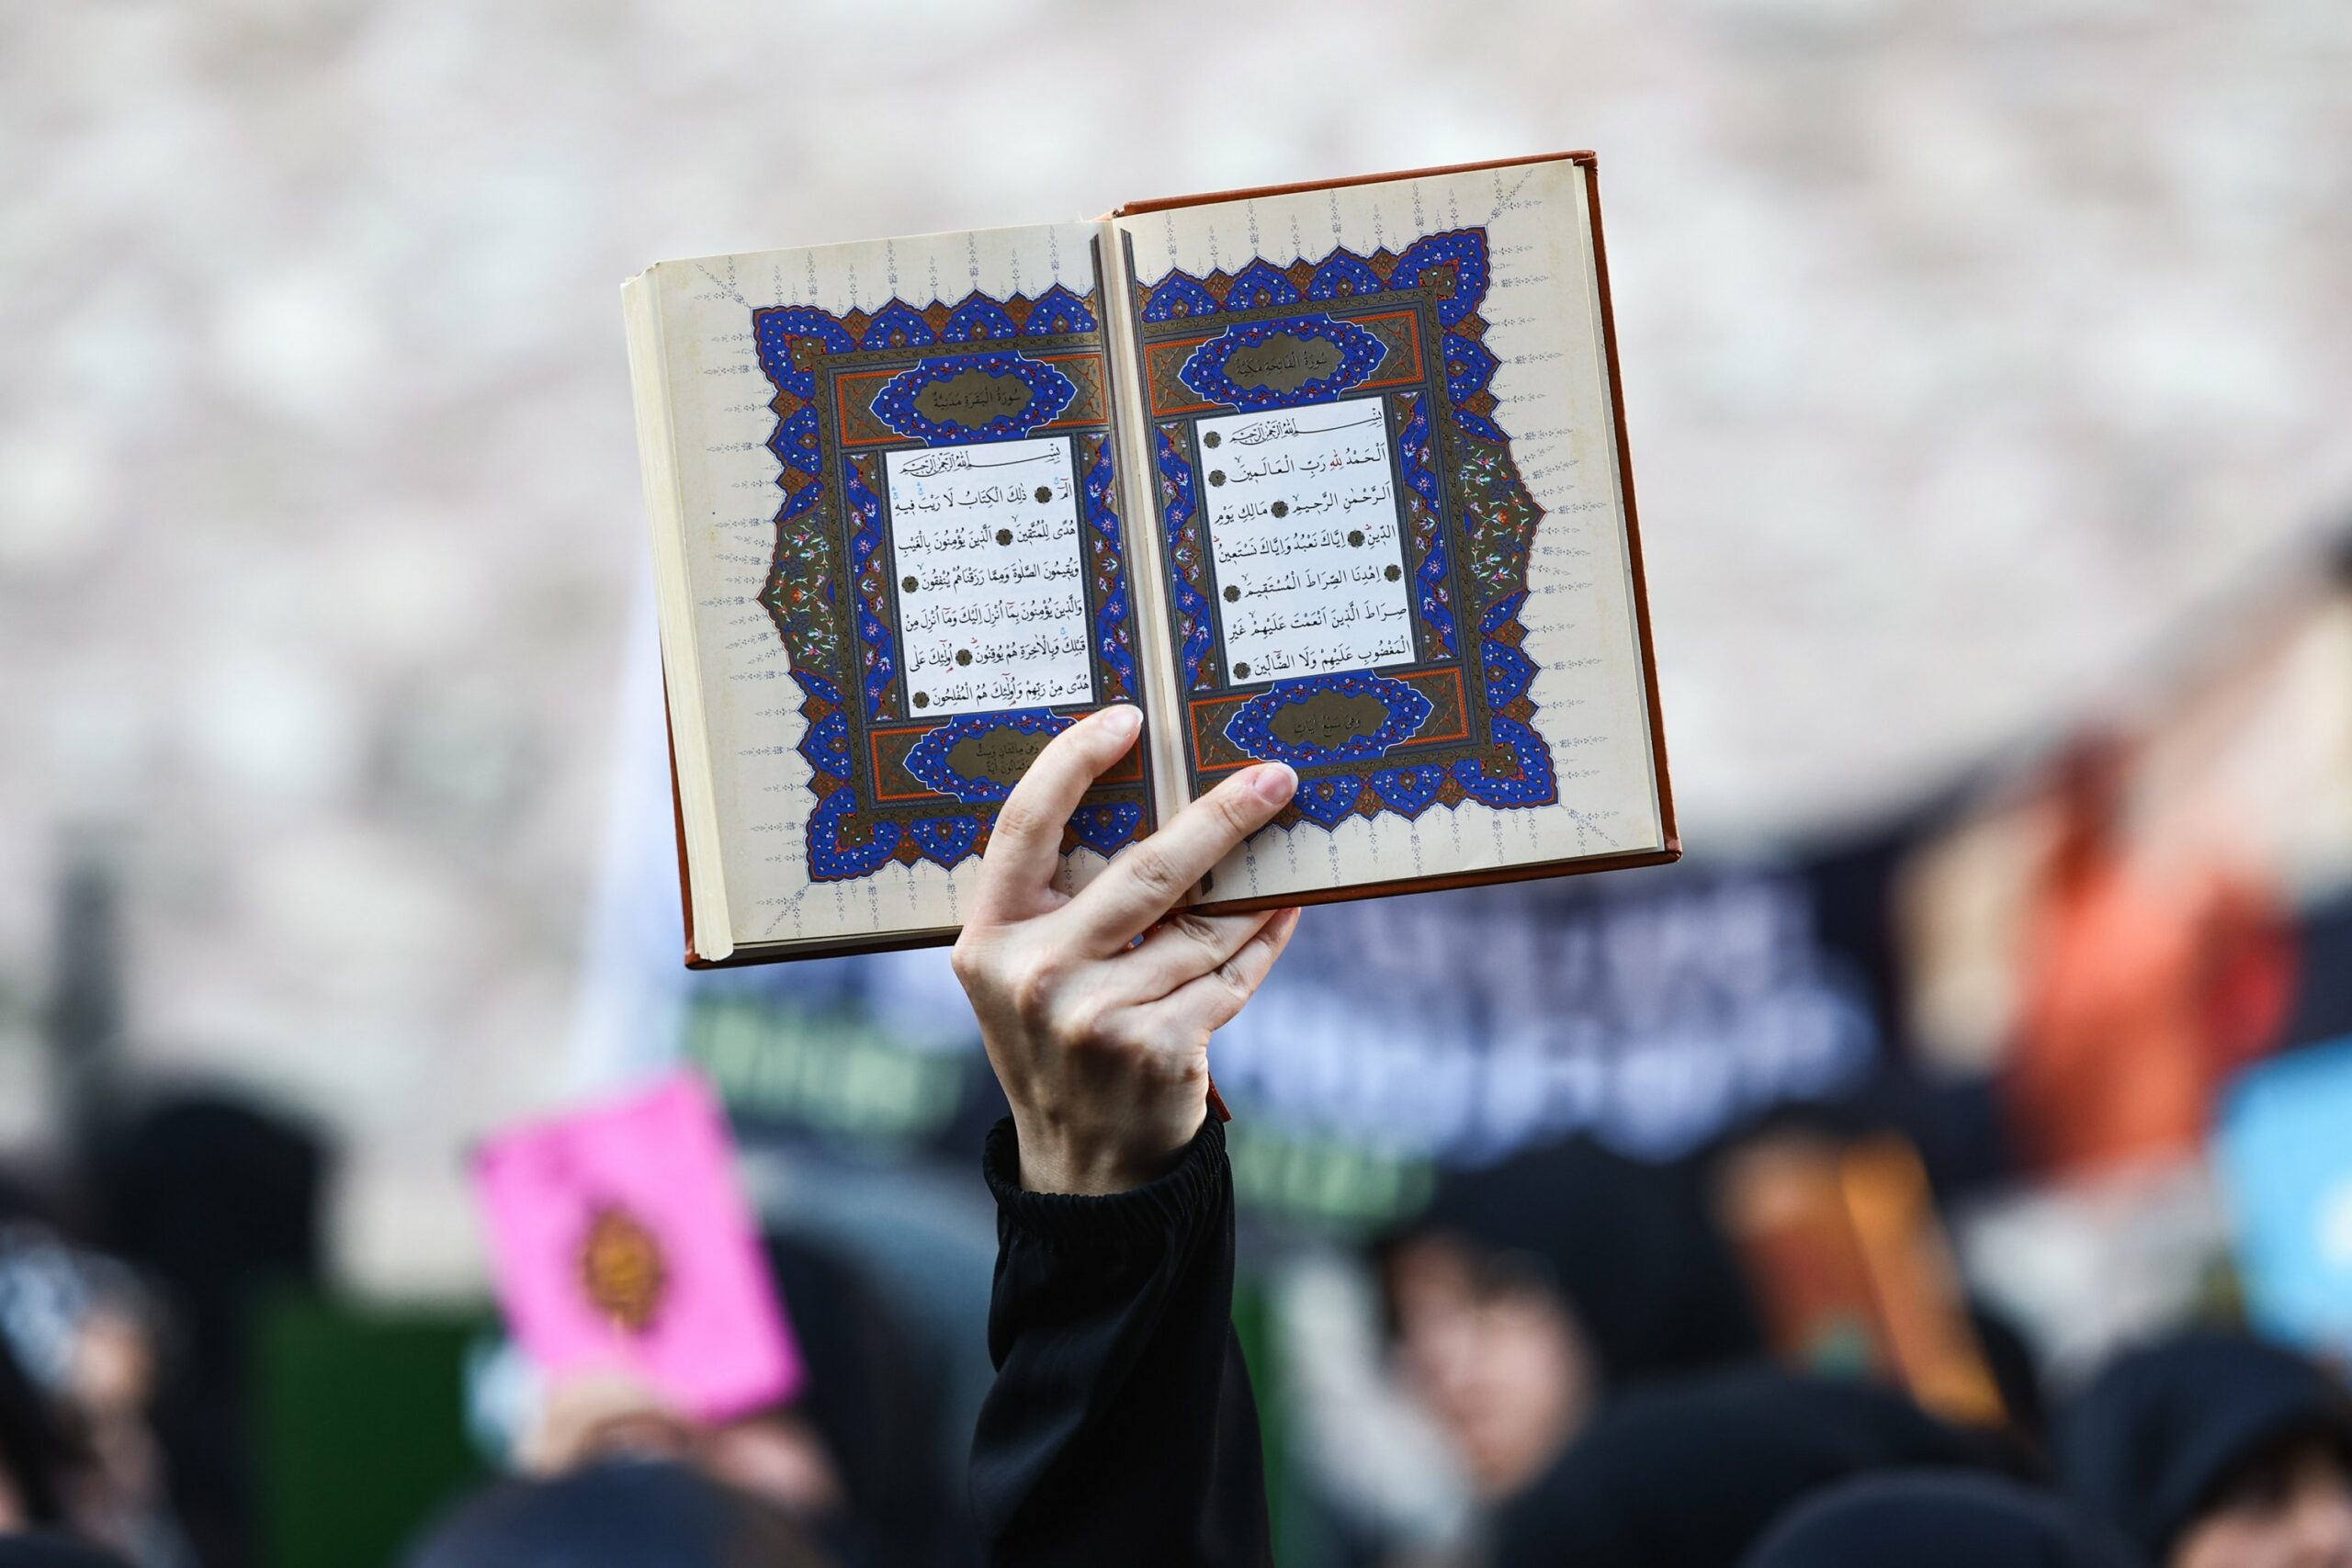 سُورَةُ الْفَاتِحَةِ مَكِّيَّةٌ
بِسْمِ اللهِ الرَّحْمٰنِ الرَّحِيمِ ۝
اَلْحَمْدُ لِلّٰهِ رَبِّ الْعَالَمِينَ ۝
اَلرَّحْمٰنِ الرَّحِيمِ ۝ مَالِكِ يَوْمِ
الدِّينِ ۝ اِيَّاكَ نَعْبُدُ وَاِيَّاكَ نَسْتَعِينُ
۝ اِهْدِنَا الصِّرَاطَ الْمُسْتَقِيمَ ۝
صِرَاطَ الَّذِينَ اَنْعَمْتَ عَلَيْهِمْ غَيْرِ
الْمَغْضُوبِ عَلَيْهِمْ وَلَا الضَّالِّينَ ۝
وَهِىَ سَبْعُ اٰيَاتٍ
سُورَةُ الْبَقَرَةِ مَدَنِيَّةٌ
بِسْمِ اللهِ الرَّحْمٰنِ الرَّحِيمِ
الٓمٓ ۝ ذٰلِكَ الْكِتَابُ لَا رَيْبَ فِيهِ
هُدًى لِلْمُتَّقِينَ ۝ اَلَّذِينَ يُؤْمِنُونَ بِالْغَيْبِ
وَيُقِيمُونَ الصَّلٰوةَ وَمِمَّا رَزَقْنَاهُمْ يُنْفِقُونَ ۝
وَالَّذِينَ يُؤْمِنُونَ بِمَٓا اُنْزِلَ اِلَيْكَ وَمَٓا اُنْزِلَ مِنْ
قَبْلِكَ وَبِالْاٰخِرَةِ هُمْ يُوقِنُونَ ۝ اُولٰٓئِكَ عَلٰى
هُدًى مِنْ رَبِّهِمْ وَاُولٰٓئِكَ هُمُ الْمُفْلِحُونَ ۝
وَهِىَ مِائَتَانِ وَسِتٌّ
وَثَمَانُونَ اٰيَةً